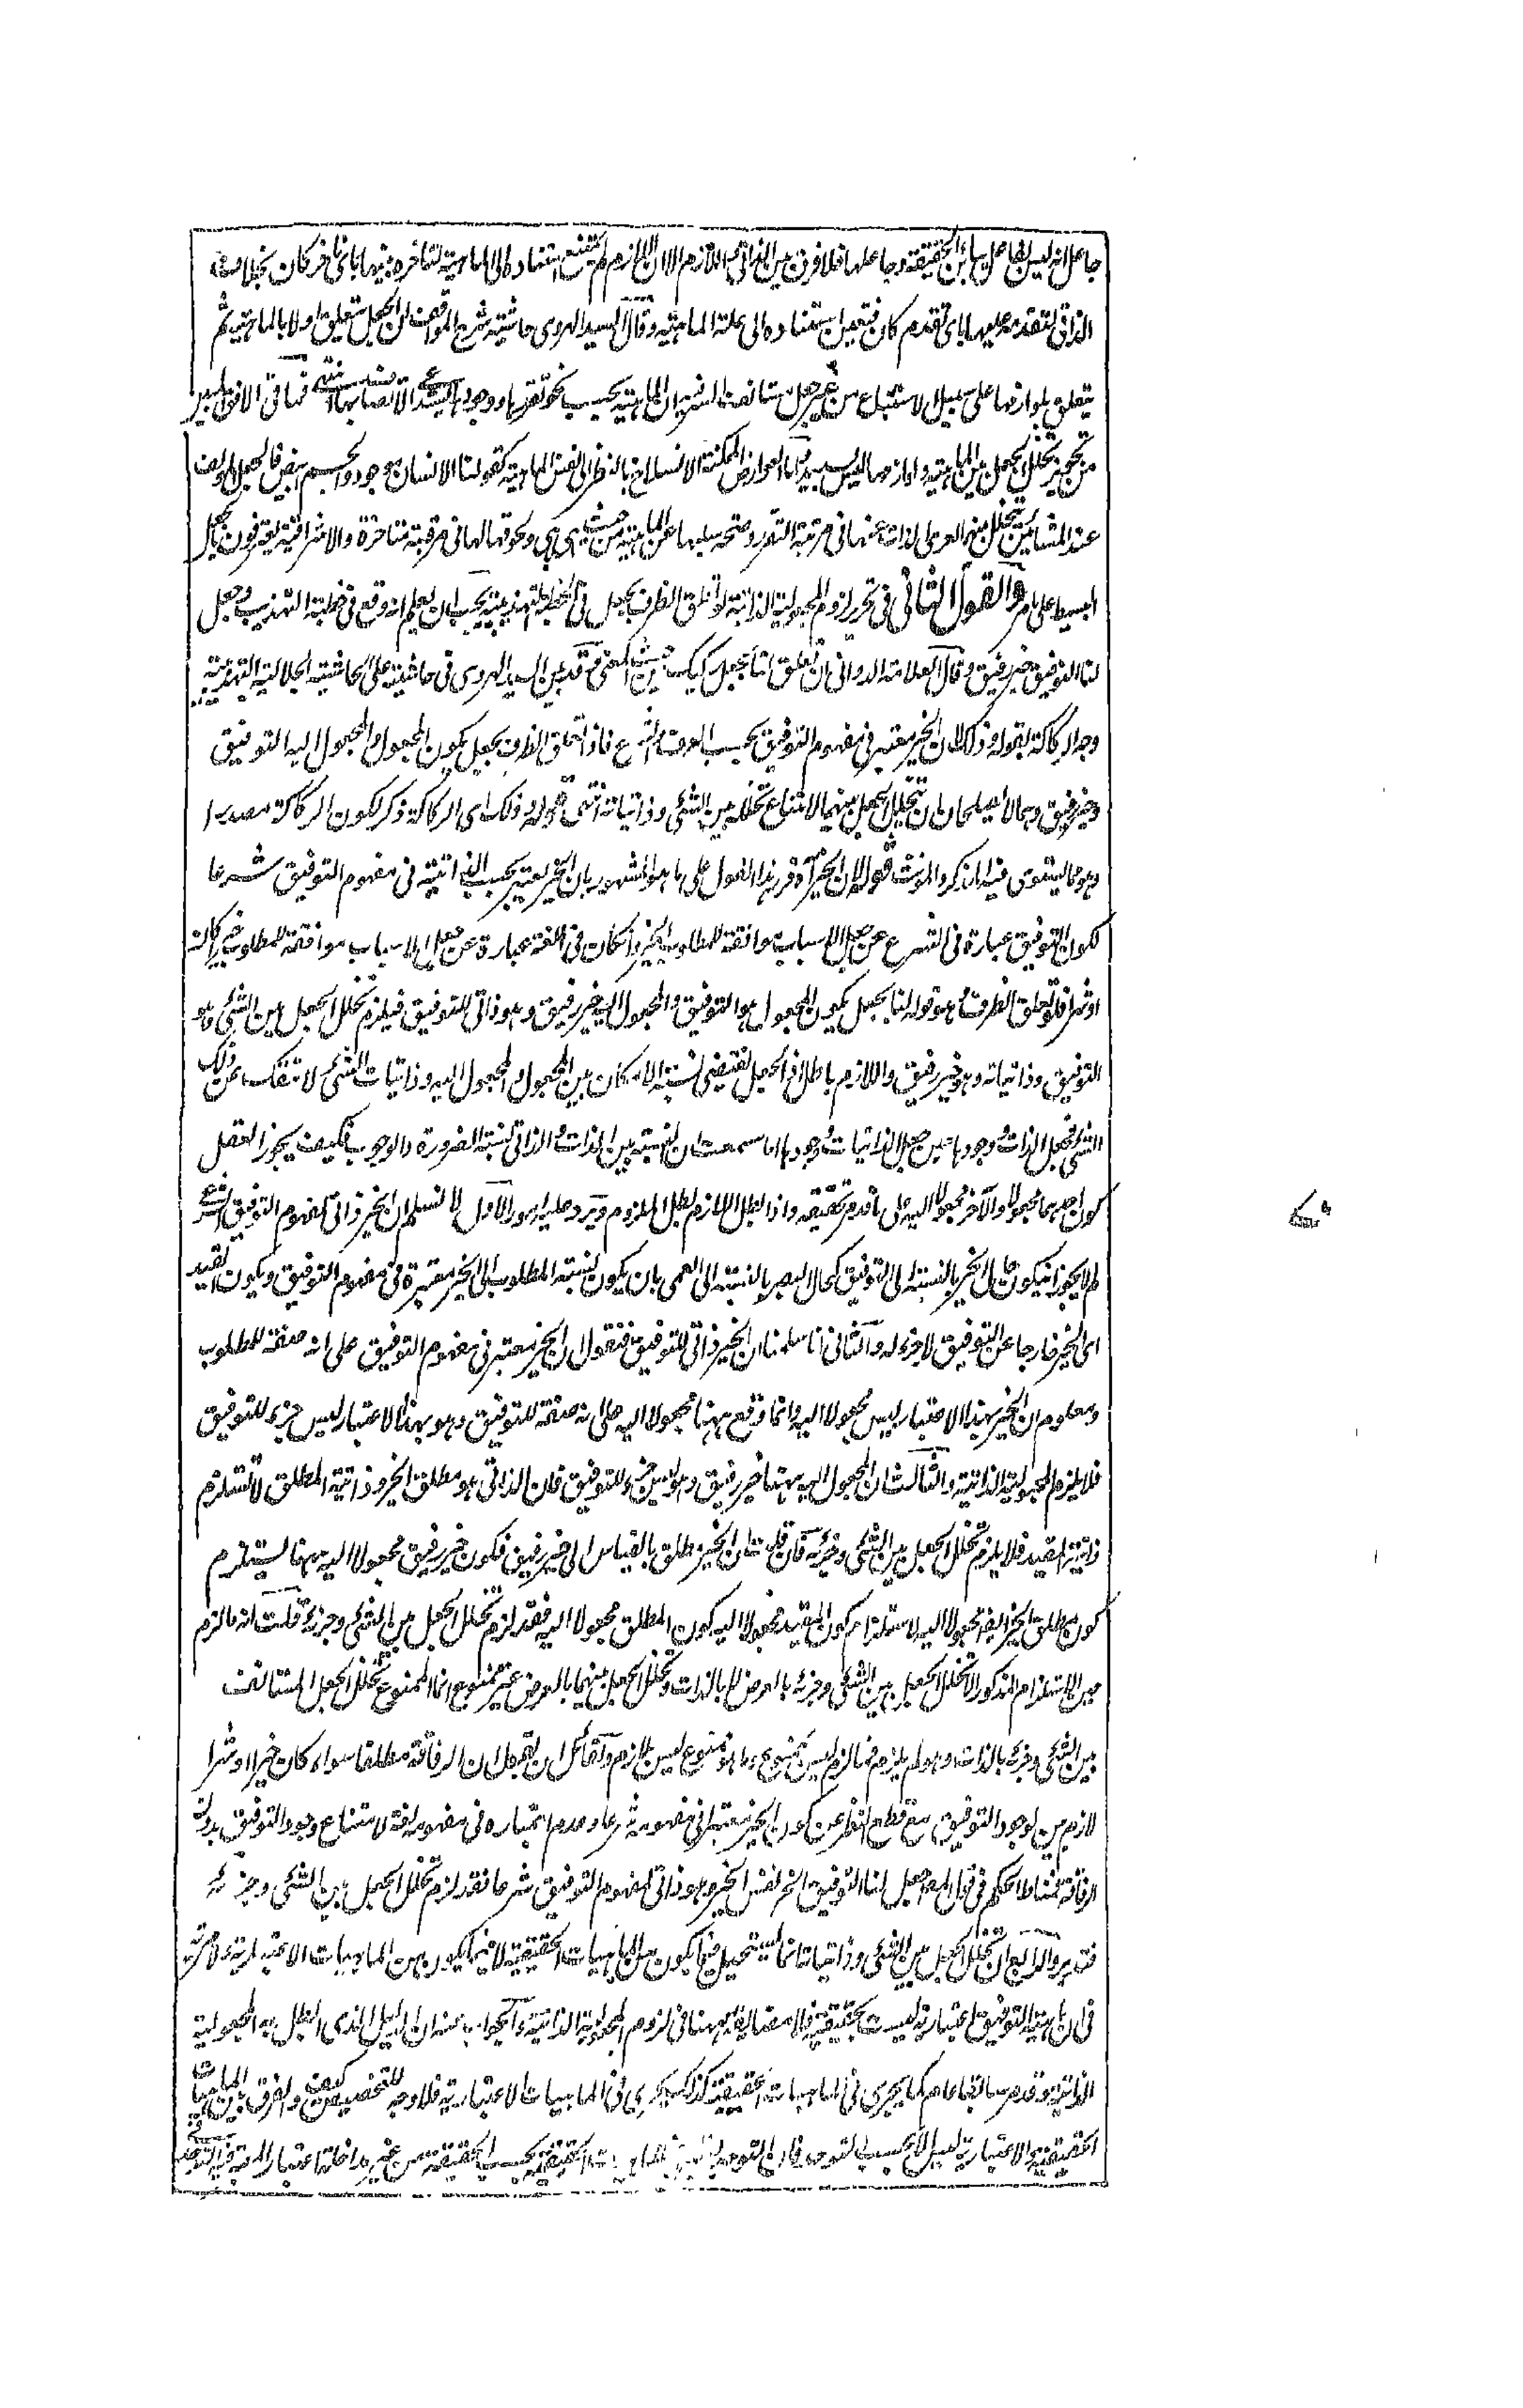 جاعل انه ليس لها جعل سيما بين الحقيقة وجاعلها فلا فرق بين الذاتي واللازم الا ان اللازم لم يمتنع استناده الى الماهية لتأخره عنها بأي تأخر كان بخلاف
الذاتي لتقدمه عليها بأي تقدم كان فتعين استناده الى علة الماهية وقال السيد الهروي حاشية شرح المواقف ان الجعل يتعلق اولا بالماهية ثم
يتعلق بلوازمها على سبيل الاستتباع من غير جعل مستأنف ان الماهية بحسب نحو تقررها ووجودها الاتصاف بها انتهى فما في الافق المبين
من تجويز تخلل الجعل بين الماهية ولوازمها ليس بسديد اما العوارض الممكنة الانسلاخ بالنظر الى نفس الماهية كقولنا الانسان موجود والجسم ابيض فالجعل المؤلف
عند المشائين يتخلل بينهما لعرى الذات عنها في مرتبة التقرر وصحة سلبها عن الماهية من حيث هي هي ولحوقها لها في مرتبة متأخرة والاشراقية يعترفون بجعل
البسيط على ما مر والقول الثاني في تحرير لزوم المجعولية الذاتية لو تعلق الظرف بجعل في الخطبة التهذيبية يجب ان يعلم انه وقع في خطبة التهذيب وجعل
لنا التوفيق خير رفيق وقال العلامة الدواني ان تعلق لنا بجعل ركيك من جهة المعنى قد بين السيد الهروي في حاشيته على الحاشية الجلالية التهذيبية
وجه الركاكة بقوله وذلك لان الخير معتبر في مفهوم التوفيق بحسب العرف والشرع فاذا تعلق الظرف بجعل يكون المجعول والمجعول اليه التوفيق
وخير رفيق وهما لا يصلحان لان يتخلل الجعل بينهما لامتناع تخلله بين الشئ وذاتياته انتهى قوله وذلك اى الركاكة ذكر لكون الركاكة مصدرا
وهو مما يستوي فيه المذكر والمؤنث قوله لان الخير آه قرر هذا القول على ما هو المشهور بان الخير معتبر بحسب الذاتية في مفهوم التوفيق شرعا
لكون التوفيق عبارة في الشرع عن جعل الاسباب موافقة للمطلوب الخير وان كان في اللغة عبارة عن جعل الاسباب موافقة للمطلوب خيرا كان
او شرا فلو تعلق الظرف وهو قوله لنا بجعل يكون المجعول هو التوفيق والمجعول اليه خير رفيق وهو ذاتي للتوفيق فيلزم تخلل الجعل بين الشئ وهو
التوفيق وذاتياته وهو خير رفيق واللازم باطل اذ الجعل يقتضي نسبة الامكان بين المجعول والمجعول اليه وذاتيات الشئ لا تنفك عن ذلك
الشئ فجعل الذات ووجودها عين جعل الذاتيات ووجودها اما سمعت ان النسبة بين الذات والذاتي نسبة الضرورة والوجوب فكيف يجوز العقل
كون احدهما مجعولا والآخر مجعولا اليه على ما قد مر تحقيقه واذا بطل اللازم بطل الملزوم ويرد عليه امور الاول لا نسلم ان الخير ذاتي لمفهوم التوفيق الشرعي
لم لا يجوز ان يكون حال الخير بالنسبة الى التوفيق كحال البصر بالنسبة الى العمى بان يكون نسبة المطلوب الى الخير معتبرة في مفهوم التوفيق ويكون القيد
اى الخير خارجا عن التوفيق لا جزء له والثاني انا سلمنا ان الخير ذاتي للتوفيق فنقول ان الخير معتبر في مفهوم التوفيق على انه صفة للمطلوب
ومعلوم ان الخير بهذا الاعتبار ليس مجعولا اليه وانما وقع ههنا مجعولا اليه على انه صفة للتوفيق وهو بهذا الاعتبار ليس جزء للتوفيق
فلا يلزم المجعولية الذاتية والثالث ان المجعول اليه ههنا خير رفيق وهو ليس جزء للتوفيق فان الذاتي هو مطلق الخير وذاتية المطلق لا تستلزم
ذاتية المقيد فلا يلزم تخلل الجعل بين الشئ وجزئه فان قلت ان الخير مطلق بالقياس الى خير رفيق فكون خير رفيق مجعولا اليه ههنا يستلزم
كون مطلق الخير ايضا مجعولا اليه لاستلزام كون المقيد مجعولا اليه كون المطلق مجعولا اليه فقد لزم تخلل الجعل بين الشئ وجزئه قلت انه ما لزم
من الاستلزام المذكور الا تخلل الجعل بين الشئ وجزئه بالعرض لا بالذات وتخلل الجعل بينهما بالعرض غير ممنوع انما الممنوع تخلل الجعل المستأنف
بين الشئ وجزئه بالذات وهو لم يلزم فما لزم ليس بممنوع وما هو ممنوع ليس بلازم ولقائل ان يقول ان الرفاقة مطلقا سواء كان خيرا او شرا
لازم بين لوجود التوفيق مع قطع النظر عن كون الخير معتبرا في مفهومه شرعا وعدم اعتباره في مفهومه لغة لامتناع وجود التوفيق بدون
الرفاقة فمناط الحكم في قول المص جعل لنا التوفيق الخ نفس الخير وهو ذاتي لمفهوم التوفيق شرعا فقد لزم تخلل الجعل بين الشئ وجزئه
فتدبر والرابع ان تخلل الجعل بين الشئ وذاتياته انما يستحيل فيما يكون من الماهيات الحقيقية لا فيما يكون من الماهيات الاعتبارية ولا مرية
في ان ماهية التوفيق اعتبارية ليست بحقيقية فلا مضائقة ههنا في لزوم المجعولية الذاتية والجواب عنه ان الدليل الذي ابطل به المجعولية
الذاتية وقد مر سابقا عام كما يجري في الماهيات الحقيقية كذلك يجري في الماهيات الاعتبارية فلا وجه للتخصيص كيف والفرق بين الماهيات
الحقيقية والاعتبارية ليس الا بحسب التوجد فان التوجد